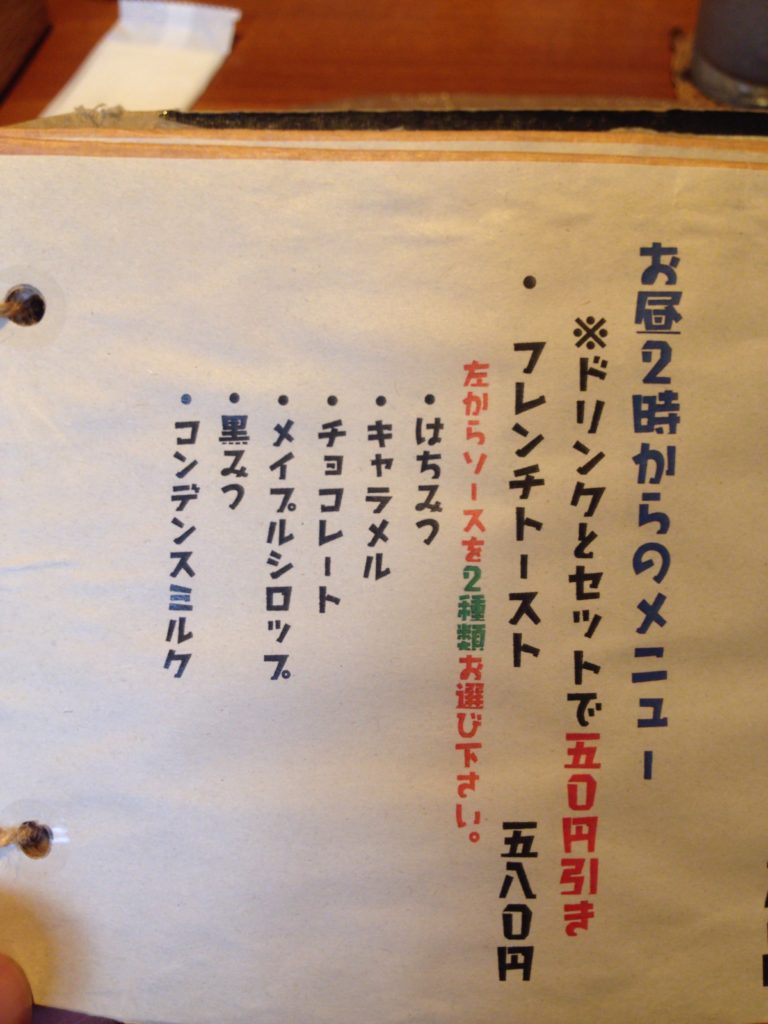 お昼2時からのメニュー
※ドリンクとセットで五〇円引き
・フレンチトースト 五八〇円
左からソースを2種類お選び下さい。
・はちみつ
・キャラメル
・チョコレート
・メイプルシロップ
・黒みつ
・コンデンスミルク